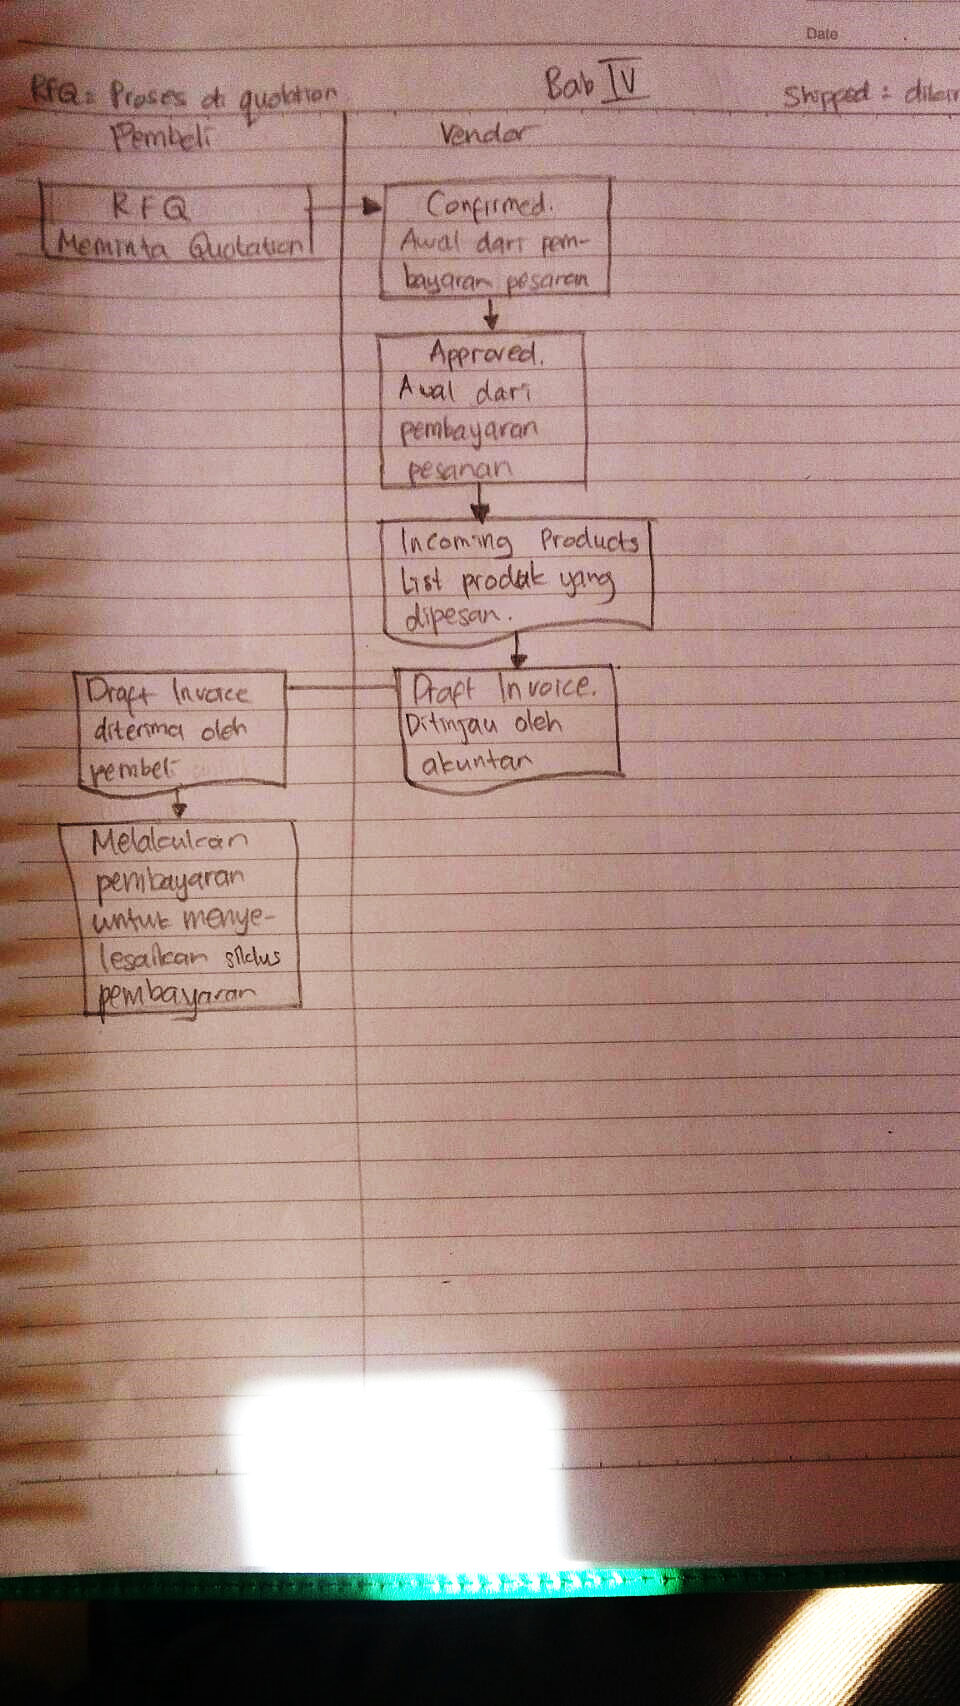 Date
Bab IV
RFQ = Proses di quotation
Shipped = dikir
Pembeli
Vendor
RFQ
Meminta Quotation
Confirmed.
Awal dari pem-
bayaran pesanan
Approved.
Awal dari
pembayaran
pesanan
Incoming Products
List produk yang
dipesan.
Draft Invoice.
Ditinjau oleh
akuntan
Draft Invoice
diterima oleh
pembeli
Melakukan
pembayaran
untuk menye-
lesaikan siklus
pembayaran